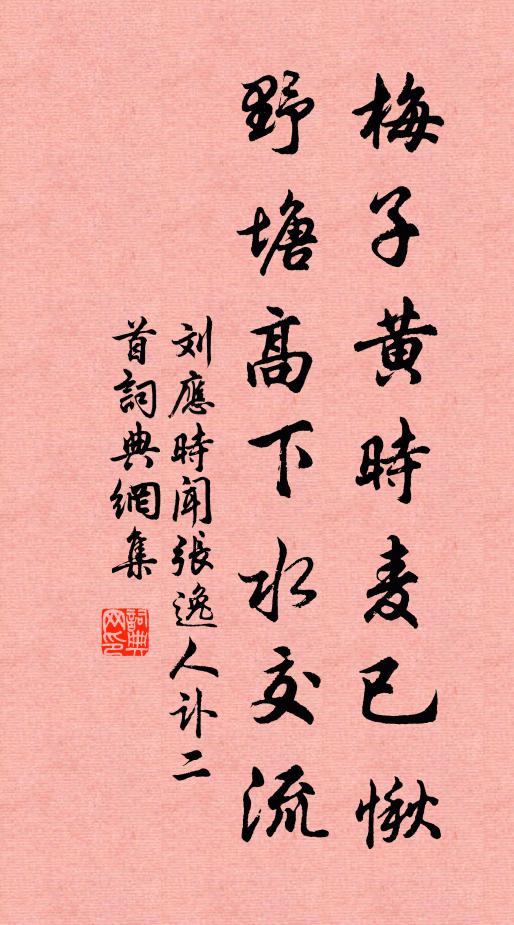 梅子黄時麦已愀
野塘高下水交流
刘應時闻張逸人讣二
首詞典網集
詞典网印